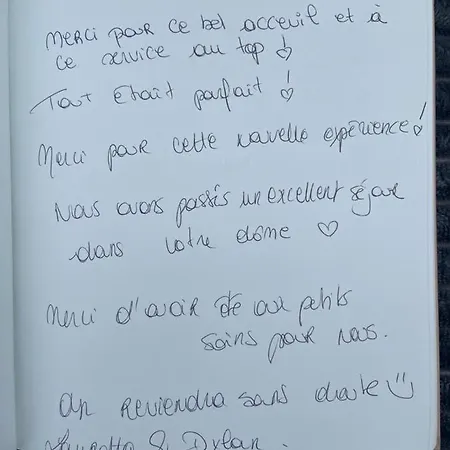 Merci pour ce bel acceuil et à
ce service au top !
Tout était parfait !
Merci pour cette nouvelle expérience !
Nous avons passés un excellent séjour
dans votre dôme ♡
Merci d'avoir été aux petits
soins pour nous.
On reviendra sans doute
& Dylan.